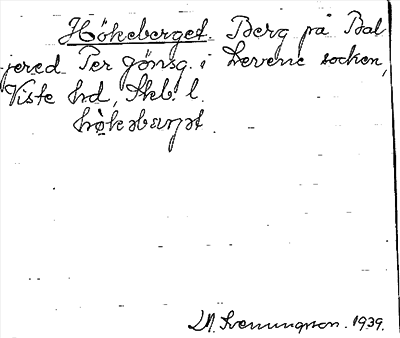 Hökeberget. Berg på Bal
jered Per Jönsg. i Levene socken,
Viste hd, Skb. l.
hökəbærjət
Svenungsson. 1939.